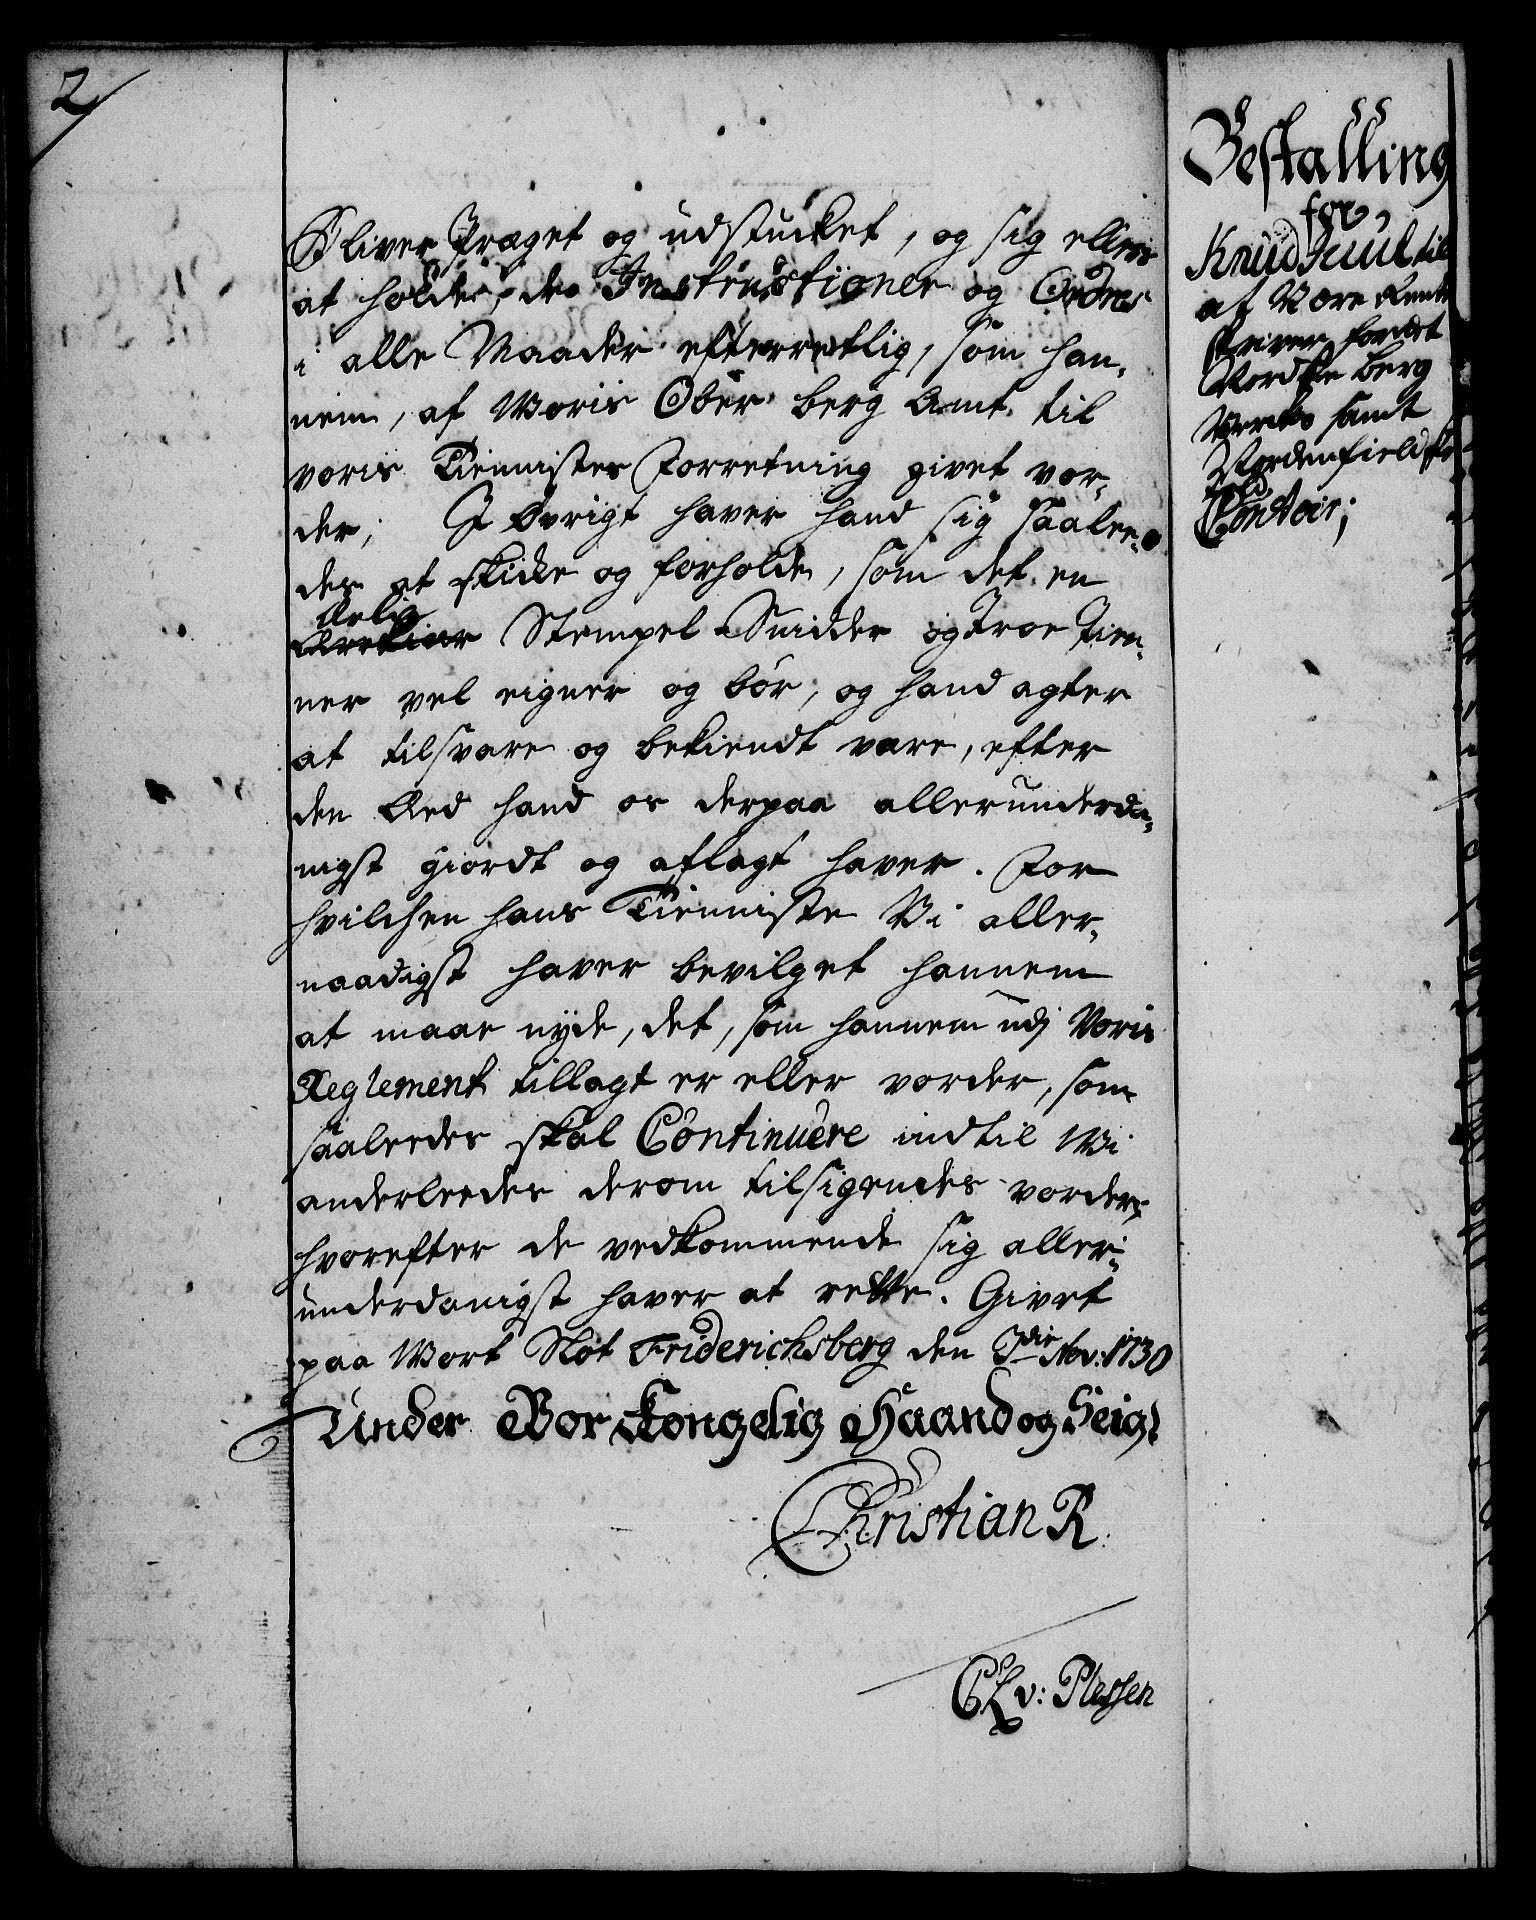 2
Bliver Præget og udstucket, og sig ellers
at holde, de Instructioner og Ordres
i alle Maader efterretlig, som han¬
nem, af Woris Ober berg Amt til
voris Tiennistes Forretning givet vor¬
der; I Øvrigt haver hand sig saalee¬
des at skicke og forholde, som det en
ærlig
Stempel Snider og Troe Tien¬
ner vel eigner og bór, og hand agter
at tilsvare og bekiendt være, efter
den Æed hand os derpaa allerunderda¬
nigst giordt og aflagt haver. For
hvilchen hans Tienniste Wi aller¬
naadigst haver bevilget hannem
at maae nyde, det, som hannem udj Voris
Reglement tillagt er eller vorder, som
saaleedes skal Continuere indtil Wi
anderleedes derom tilsigendes vorder,
hvorefter de vedkommende sig aller¬
underdanigst haver at rette. Givet
paa Wort Slot Friderichsberg den 3die Nov: 1730
Under Vor Kongelig Haand og Seigl
Christian R.
CLv: Plessen
Bestalling
for
Knud Juul til
at Være Rente
skriver for det
Nordske Berg
Verks samt
Nordenfieldske
Contoir;